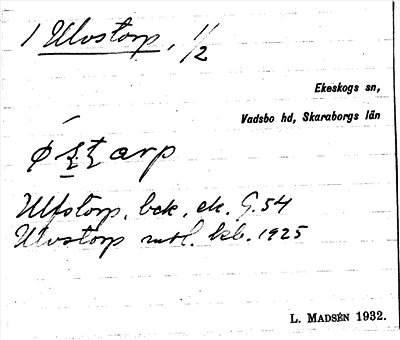 1 Ulvstorp, 1/2
Ekeskogs sn,
Vadsbo hd, Skaraborgs län
Ulfstorp, bck, ek. G. 54
Ulvstorp mtl. kb. 1925
L. MADSÉN 1932.